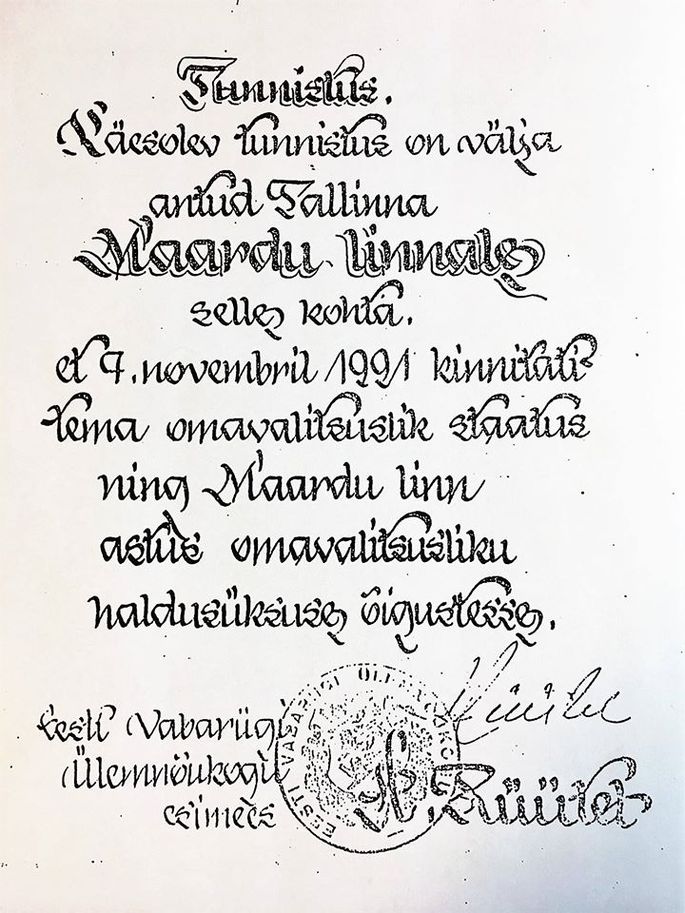 Tunnistus.
Käesolev tunnistus on välja
antud Tallinna
Maardu linnale
selle kohta,
et 7. novembril 1991 kinnitati
tema omavalitsuslik staatus
ning Maardu linn
astus omavalitsusliku
haldusüksuse õigustesse.
Eesti Vabariigi
Ülemnõukogu
esimees
A. Rüütel
EESTI VABARIIGI ÜLEMNÕUKOGU